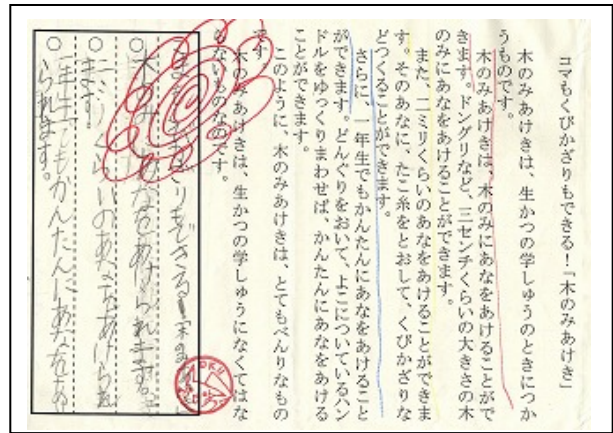 コマもくびかざりもできる！「木のみあけき」
木のみあけきは、生かつの学しゅうのときにつか
うものです。
木のみあけきは、木のみにあなをあけることがで
きます。ドングリなど、三センチくらいの大きさの木
のみにあなをあけることができます。
また、二ミリくらいのあなをあけることができま
す。そのあなに、たこ糸をとおして、くびかざりな
どつくることができます。
さらに、一年生でもかんたんにあなをあけること
ができます。どんぐりをおいて、よこについているハン
ドルをゆっくりまわせば、かんたんにあなをあける
ことができます。
このように、木のみあけきは、とてもべんりなもの
です。
木のみあけきは、生かつの学しゅうになくてはな
らないものなのです。
できる！
○木のみ あなをあけられます。
○二ミリくらいのあなをあけられ
ます。
○一年生でもかんたんにあなをあけ
られます。